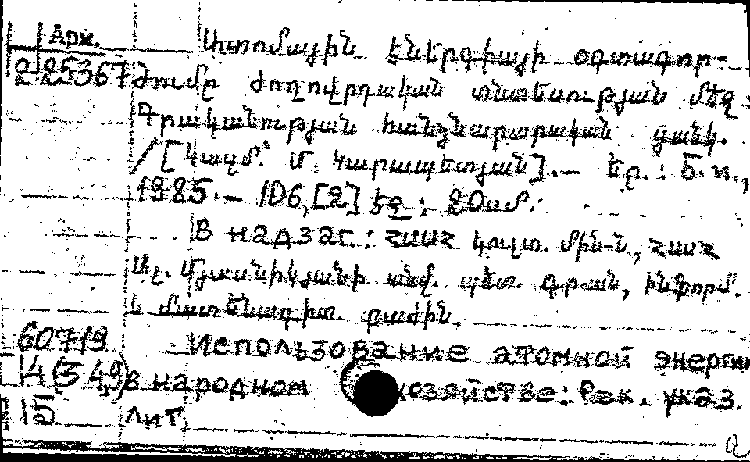 Арм. Ատոմային էներգիայի օգտագոր-
2 25367 ծումը ժողովրդական տնտեսության մեջ:
Գրականության հանձնարարական ցանկ.
/[Կազմ. Մ. Կարապետյան].— Եր.: Б. и.,
1985.— 106,[2] էջ; 20սմ.
В надзаг: ՀՍՍՀ կուլտ. մին-ն, ՀՍՍՀ
Ալ. Մյասնիկյանի անվ. պետ. գրադ., ինֆորմ.
և մատենագիտ. բաժին.
60719 Использование атомной энергии
14(549) в народном хозяйстве: Рек. указ.
15 лит.